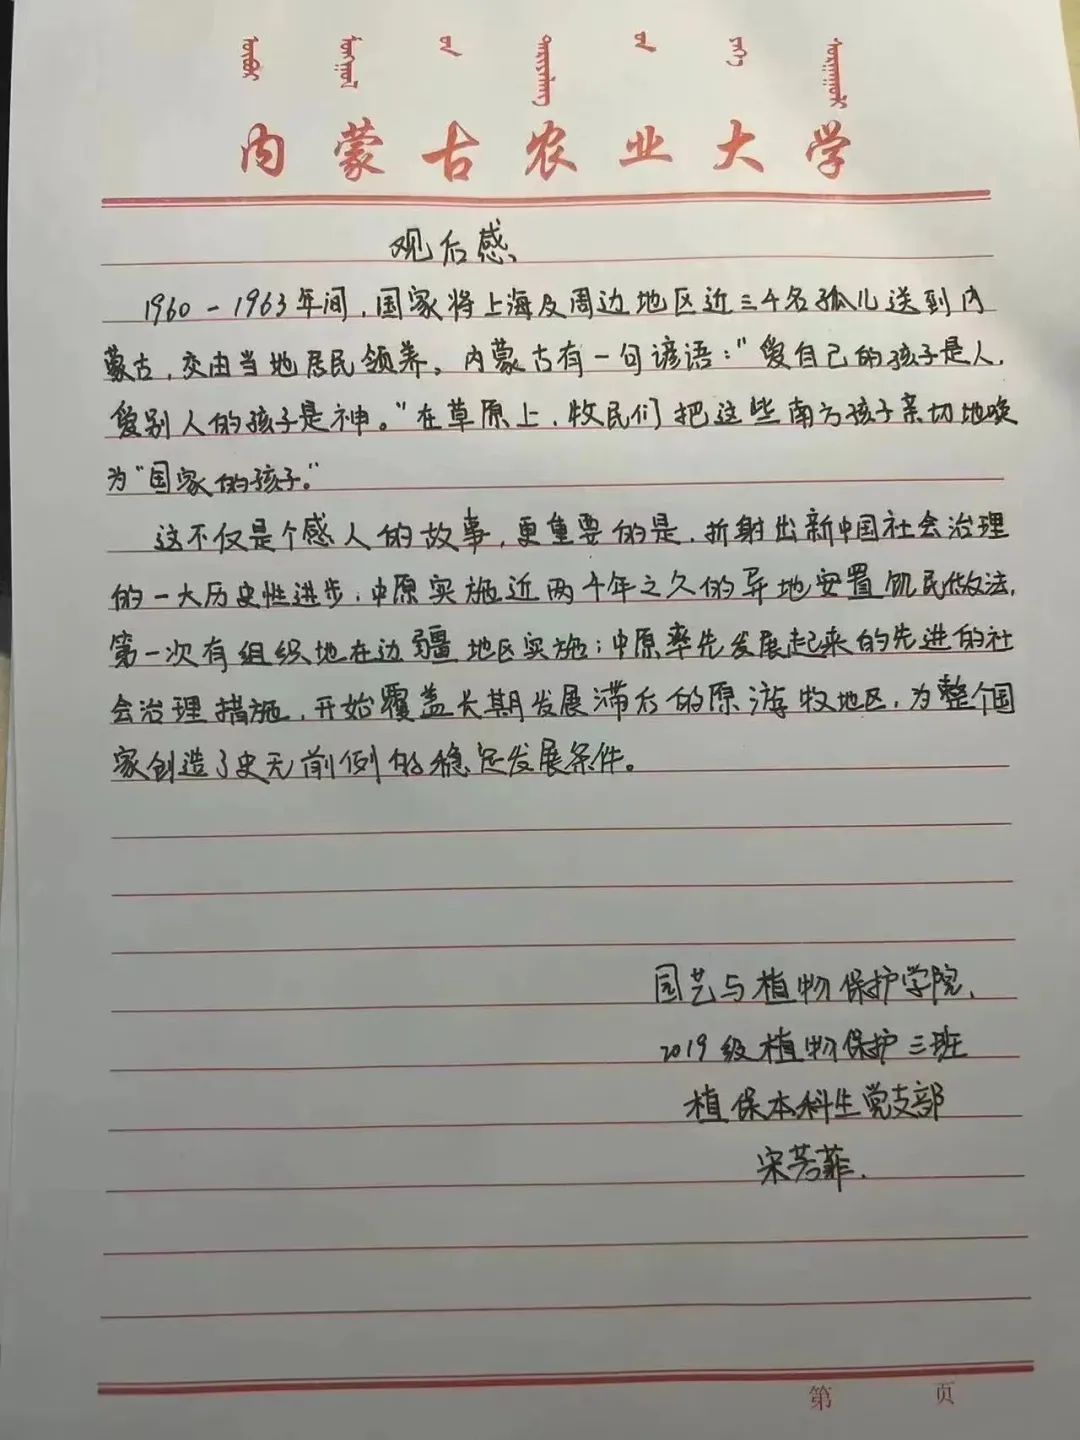 内蒙古农业大学
观后感
1960-1963年间,国家将上海及周边地区近三千名孤儿送到内
蒙古,交由当地居民领养。内蒙古有一句谚语:"爱自己的孩子是人,
爱别人的孩子是神。"在草原上,牧民们把这些南方孩子亲切地唤
为"国家的孩子。"
这不仅是个感人的故事,更重要的是,折射出新中国社会治理
的一大历史性进步:中原实施近两千年之久的异地安置饥民做法,
第一次有组织地在边疆地区实施;中原率先发展起来的先进的社
会治理措施,开始覆盖长期发展滞后的原游牧地区,为整个国
家创造了史无前例的稳定发展条件。
园艺与植物保护学院.
2019级植物保护三班
植保本科生党支部
宋芳菲.
第 页